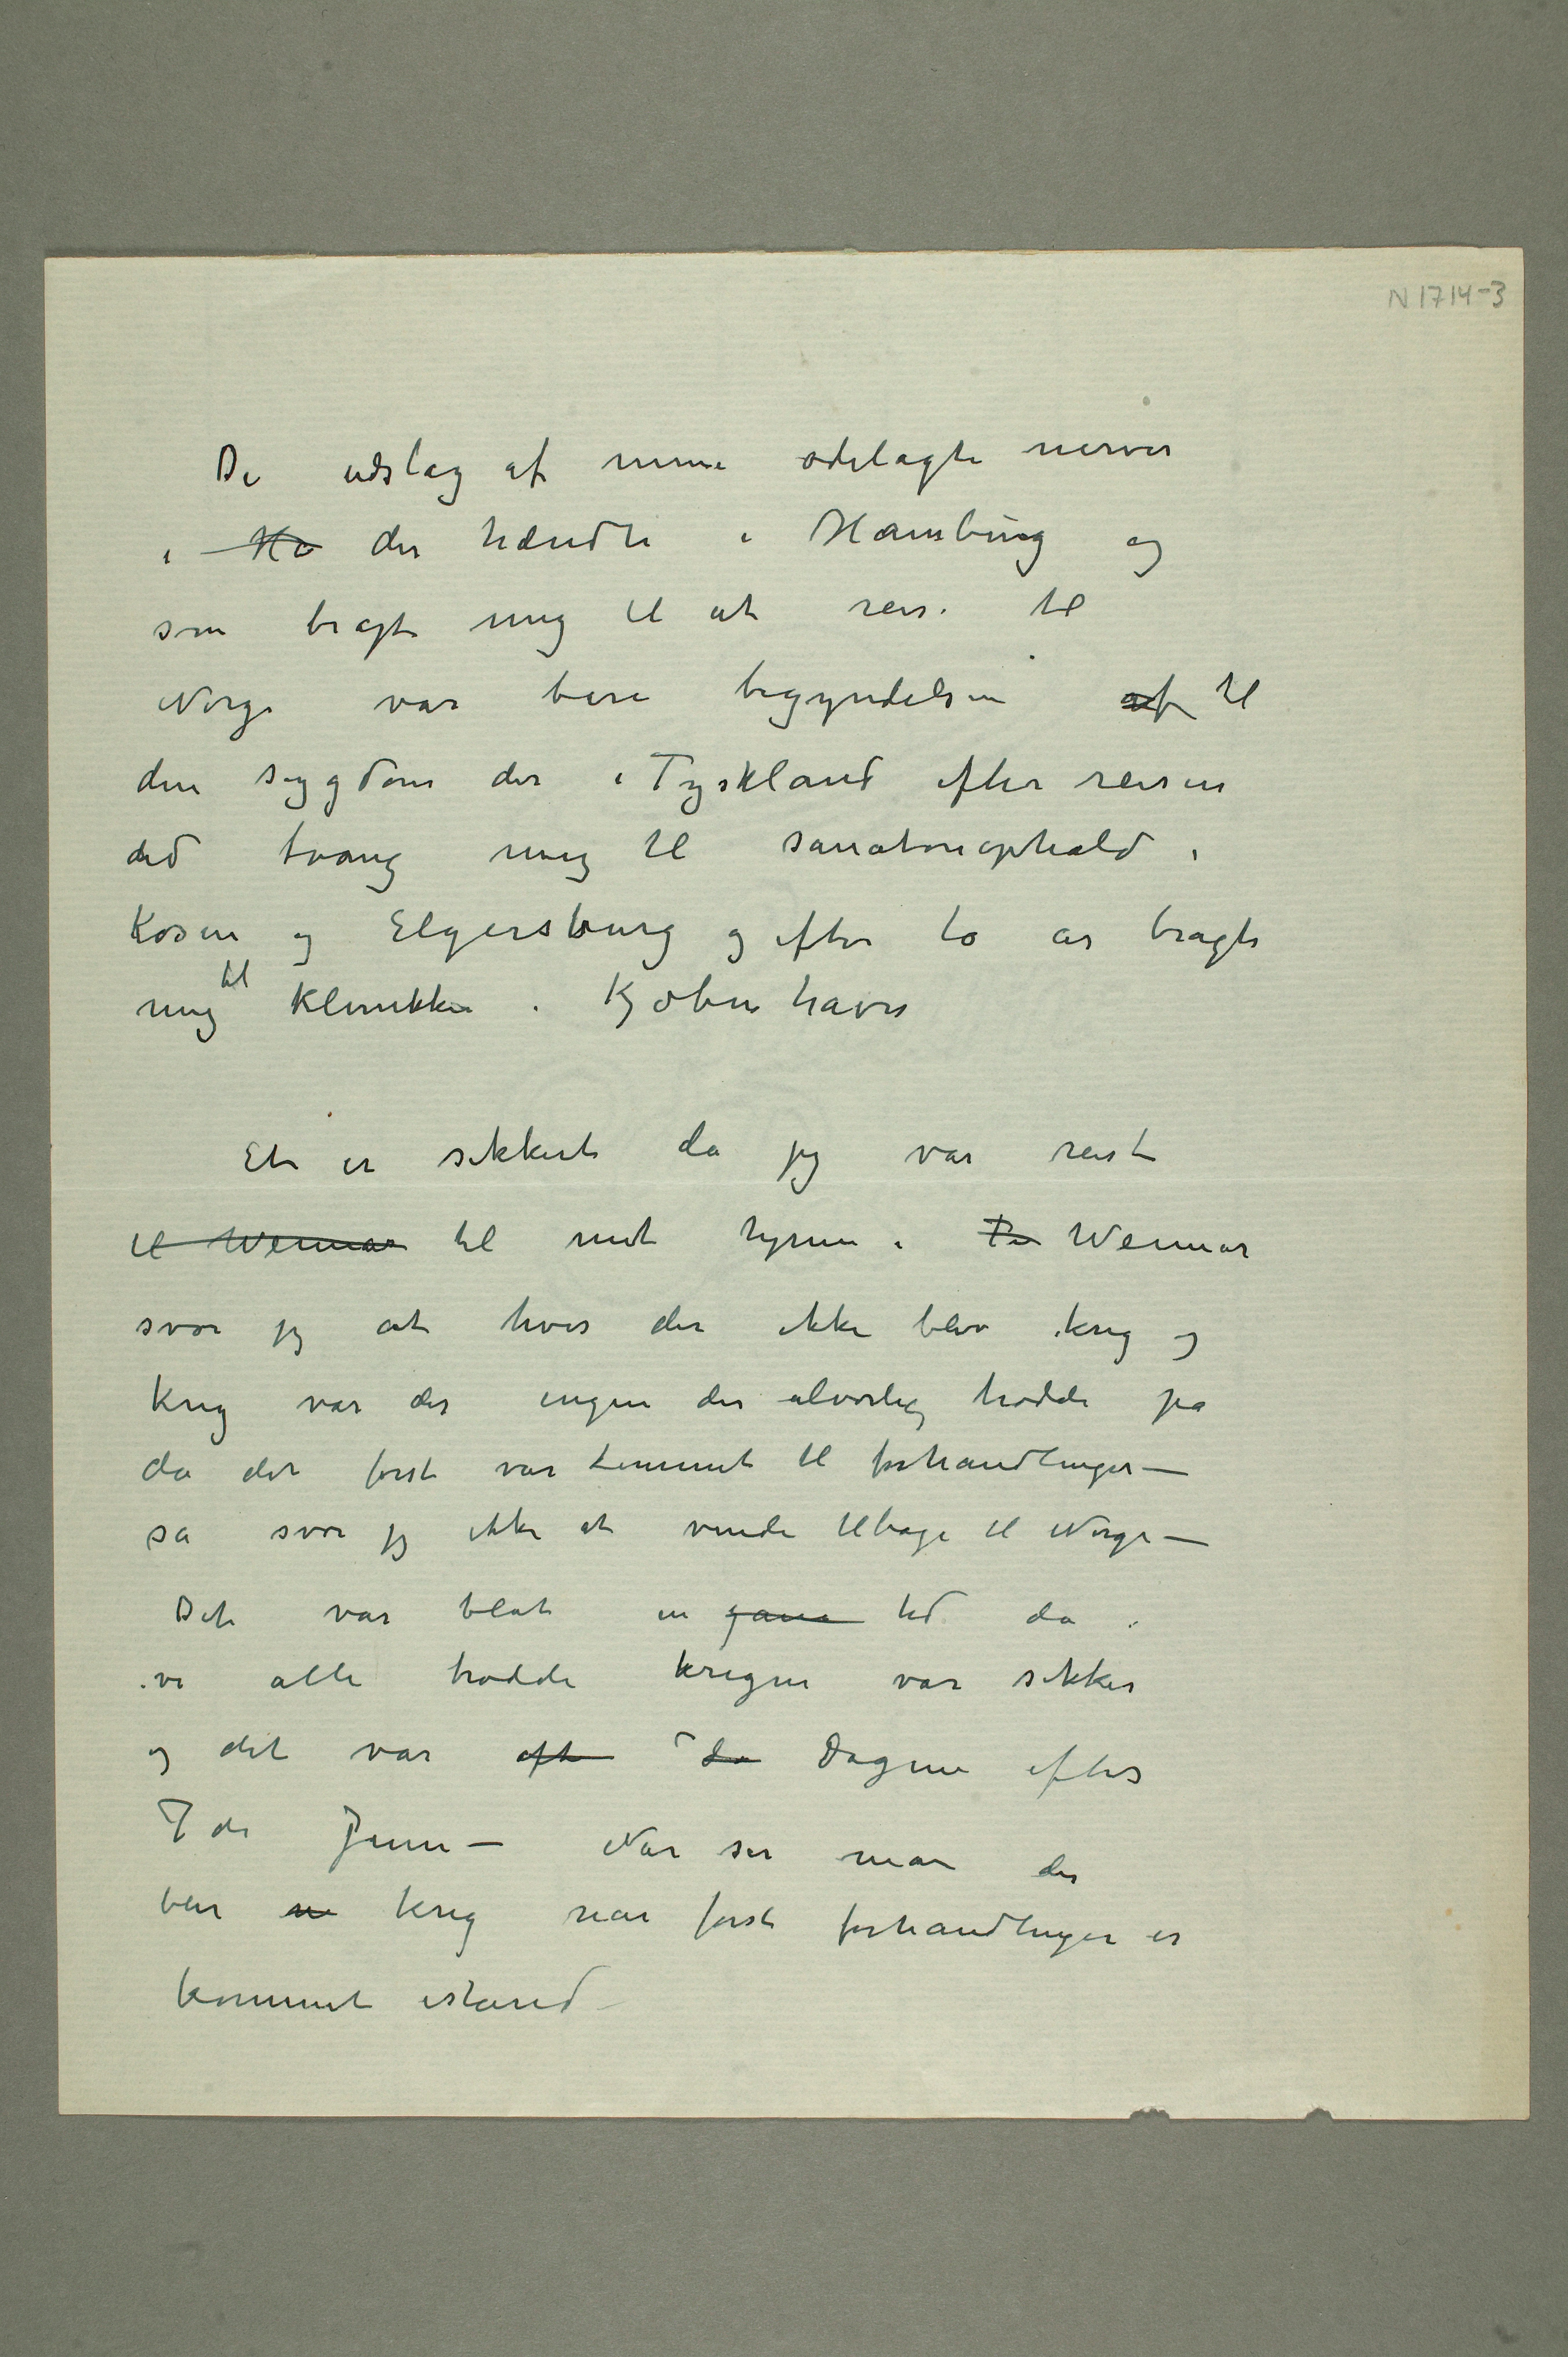 N 1714-3
De udslag af mine ødelagte nerver
i Ha der hændte i Hamburg og
som bragte mig til at reise til
Norge var bare begyndelsen af til
den sygdom der i Tyskland efter reisen
ned tvang mig til sanatorieophold i
Køsen og Elgersburg og efter to år bragte
mig til Klinikken i Kjøbenhavn
Et er sikkert da jeg var reist
til Weimar til mit hjem i Weimar
svor jeg at hvis der ikke blev krig og
krig var der ingen der alvorlig trodde på
da det først var kommet til forhandlinger –
så svor jeg ikke at vende tilbage til Norge –
Det var blot en gang tid da
vi alle trodde krigen var sikker
og det var efte da Dagene efter
7de Juni – Når ser man der
blir krig når først forhandlinger er
kommet istand